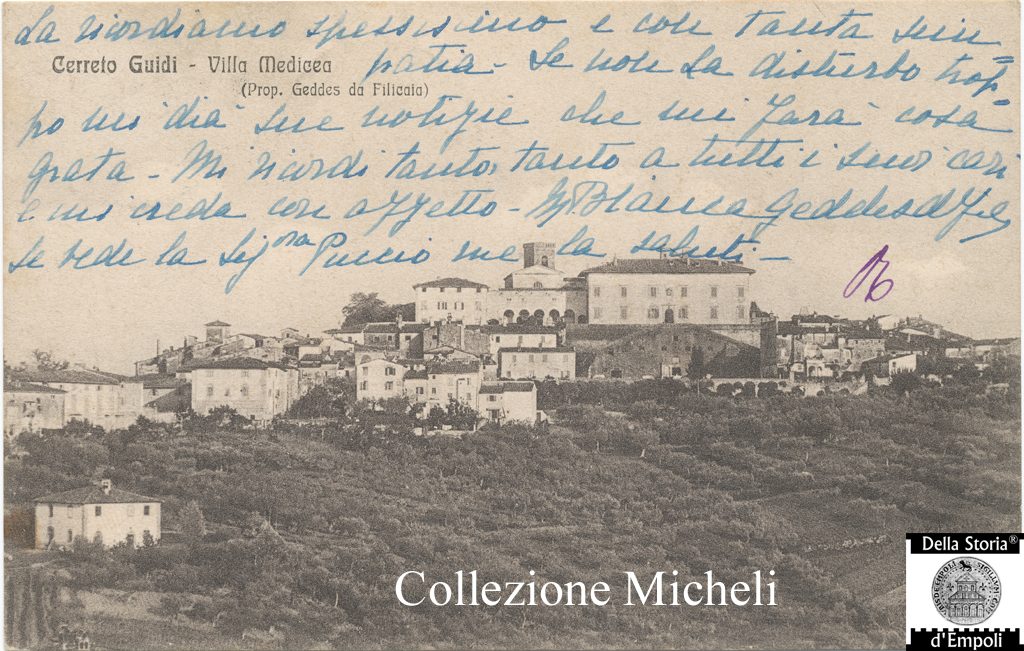 La ricordiamo spessissimo e con tanta sim=
Cerreto Guidi - Villa Medicea
(Prop. Geddes da Filicaia)
patia - Se non La disturbo trop=
po mi dia sue notizie che mi farà cosa
grata - Mi ricordi tanto, tanto a tutti i suoi cari
e mi creda con affetto - Bianca Geddes d Fil
se vede la Sig.ora Puccio me la saluti -
Collezione Micheli
Della Storia®
d'Empoli